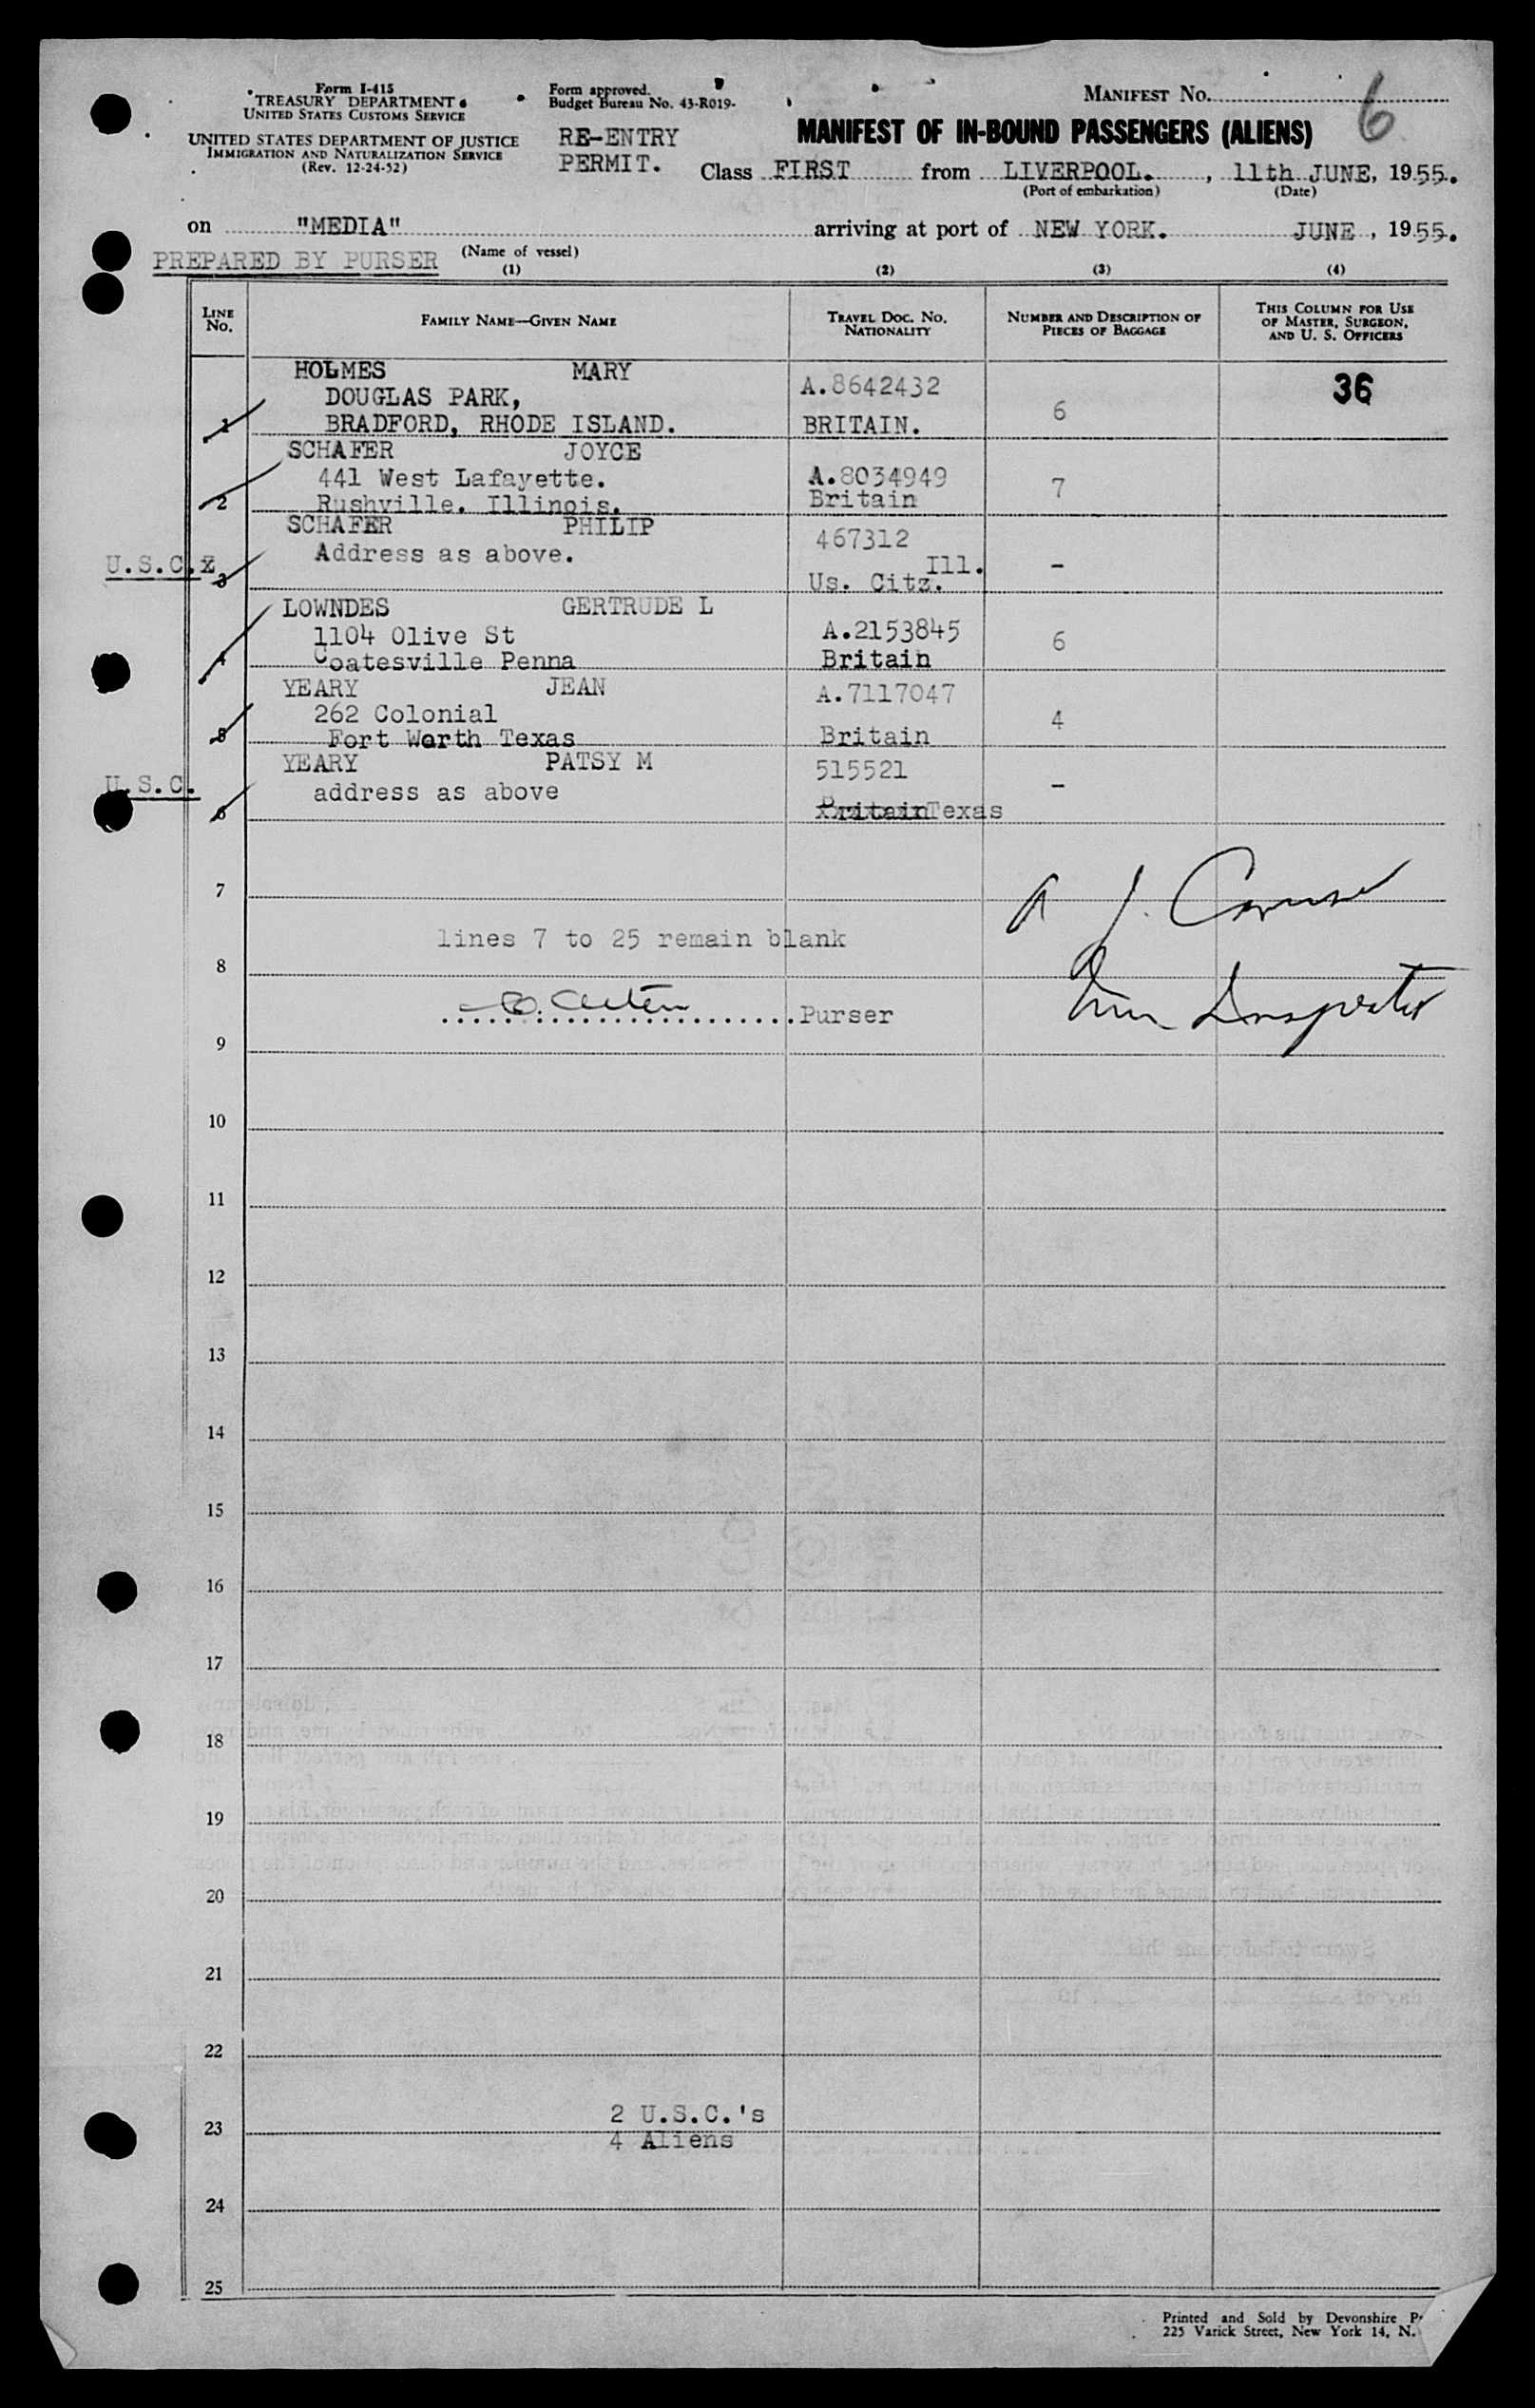 Form I-415
TREASURY DEPARTMENT
UNITED STATES CUSTOMS SERVICE
UNITED STATES DEPARTMENT OF JUSTICE
IMMIGRATION AND NATURALIZATION SERVICE
(Rev. 12-24-52)
Form approved.
Budget Bureau No. 43-R019-
RE-ENTRY
PERMIT.
MANIFEST NO. 6
MANIFEST OF IN-BOUND PASSENGERS (ALIENS)
Class FIRST from LIVERPOOL. , 11th JUNE, 1955.
(Port of embarkation) (Date)
on "MEDIA" arriving at port of NEW YORK. JUNE , 1955.
PREPARED BY PURSER (Name of vessel)
(1) (2) (3) (4)
LINE NO. FAMILY NAME—GIVEN NAME TRAVEL DOC. NO. NATIONALITY NUMBER AND DESCRIPTION OF PIECES OF BAGGAGE THIS COLUMN FOR USE OF MASTER, SURGEON, AND U. S. OFFICERS
HOLMES MARY 36
DOUGLAS PARK, A.8642432
1 BRADFORD, RHODE ISLAND. BRITAIN. 6
SCHAFER JOYCE
441 West Lafayette. A.8034949
2 Rushville. Illinois. Britain 7
SCHAFER PHILIP 467312
U.S.C.x Address as above. Ill. -
3 Us. Citz.
LOWNDES GERTRUDE L
1104 Olive St A.2153845
4 Coatesville Penna Britain 6
YEARY JEAN A.7117047
262 Colonial 4
5 Fort Worth Texas Britain
YEARY PATSY M 515521
U.S.C. address as above -
6 Britain Texas
7
A J. Caruso
lines 7 to 25 remain blank
8
Purser
Imm Inspector
9
10
11
12
13
14
15
16
17
18
19
20
21
22
2 U.S.C.'s
23
4 Aliens
24
25
Printed and Sold by Devonshire
225 Varick Street, New York 14, N.